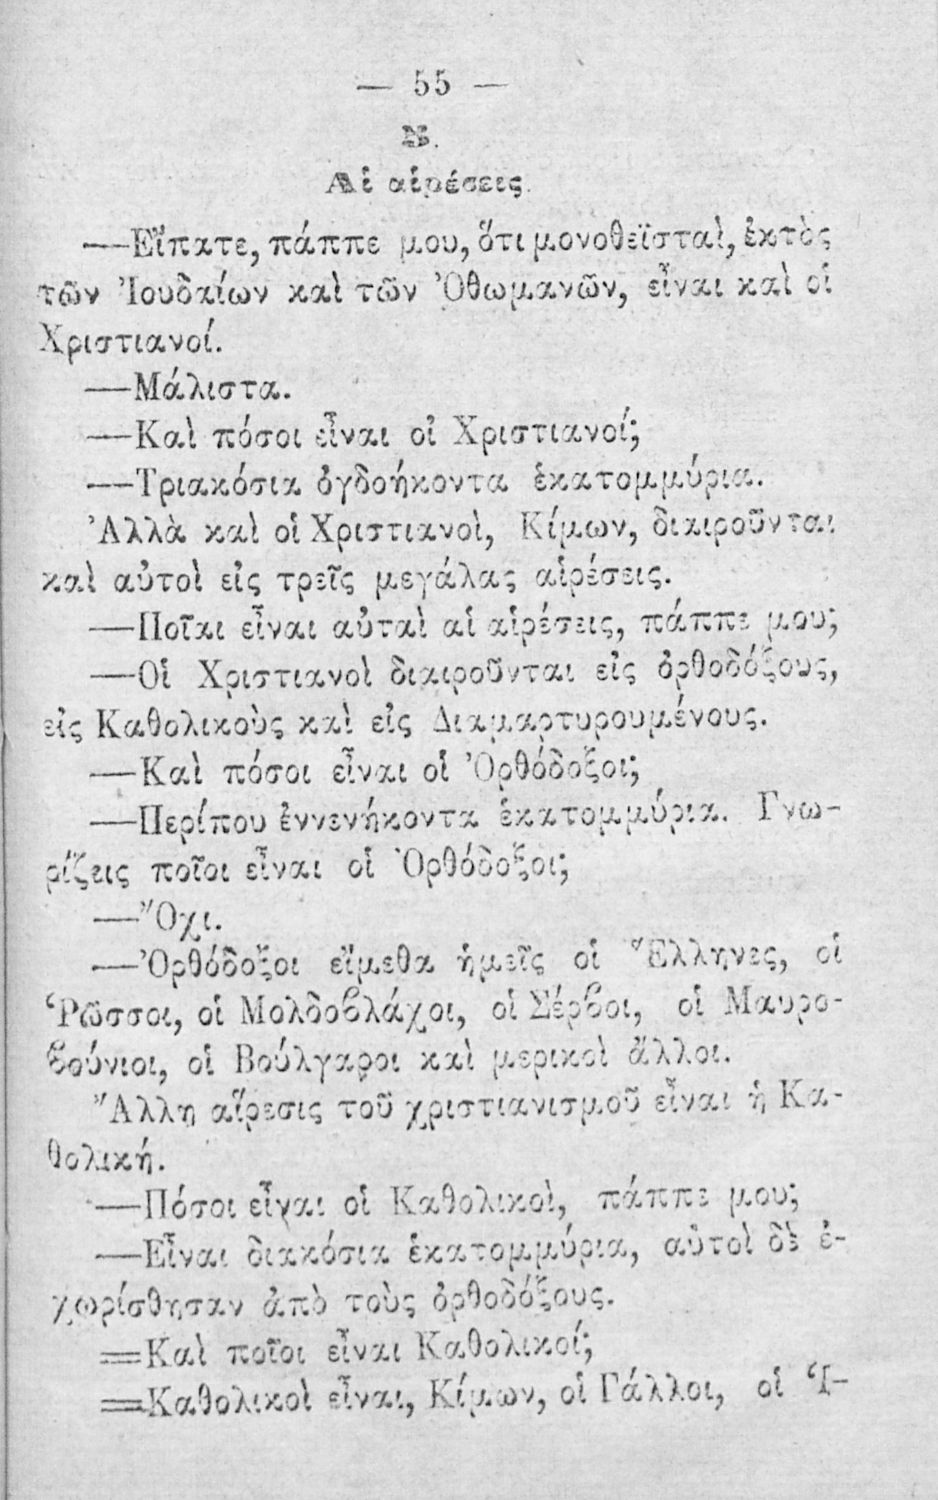 — 55 —
Αἱ αἱρέσεις.
—Εἴπατε, πάππε μου, ὅτι μονοθεϊσταὶ, ἐκτὸς
τῶν Ἰουδαίων καὶ τῶν Ὀθωμανῶν, εἶναι καὶ οἱ
Χριστιανοί.
—Μάλιστα.
—Καὶ πόσοι εἶναι οἱ Χριστιανοί;
—Τριακόσια ὀγδοήκοντα ἑκατομμύρια.
Ἀλλὰ καὶ οἱ Χριστιανοὶ, Κίμων, διαιροῦνται
καὶ αὐτοὶ εἰς τρεῖς μεγάλας αἱρέσεις.
—Ποῖαι εἶναι αὐταὶ αἱ αἱρέσεις, πάππε μου;
—Οἱ Χριστιανοὶ διαιροῦνται εἰς ὀρθοδόξους,
εἰς Καθολικοὺς καὶ εἰς Διαμαρτυρουμένους.
—Καὶ πόσοι εἶναι οἱ Ὀρθόδοξοι;
—Περίπου ἐννενήκοντα ἑκατομμύρια. Γνω-
ρίζεις ποῖοι εἶναι οἱ Ὀρθόδοξοι;
—Ὄχι.
—Ὀρθόδοξοι εἴμεθα ἡμεῖς οἱ Ἕλληνες, οἱ
Ῥῶσσοι, οἱ Μολδοβλάχοι, οἱ Σέρβοι, οἱ Μαυρο-
βούνιοι, οἱ Βούλγαροι καὶ μερικοὶ ἄλλοι.
Ἄλλη αἵρεσις τοῦ χριστιανισμοῦ εἶναι ἡ Κα-
θολική.
—Πόσοι εἶναι οἱ Καθολικοὶ, πάππε μου;
—Εἶναι διακόσια ἑκατομμύρια, αὐτοὶ δὲ ἐ-
χωρίσθησαν ἀπὸ τοὺς ὀρθοδόξους.
=Καὶ ποῖοι εἶναι Καθολικοί;
=Καθολικοὶ εἶναι, Κίμων, οἱ Γάλλοι, οἱ Ἱ-